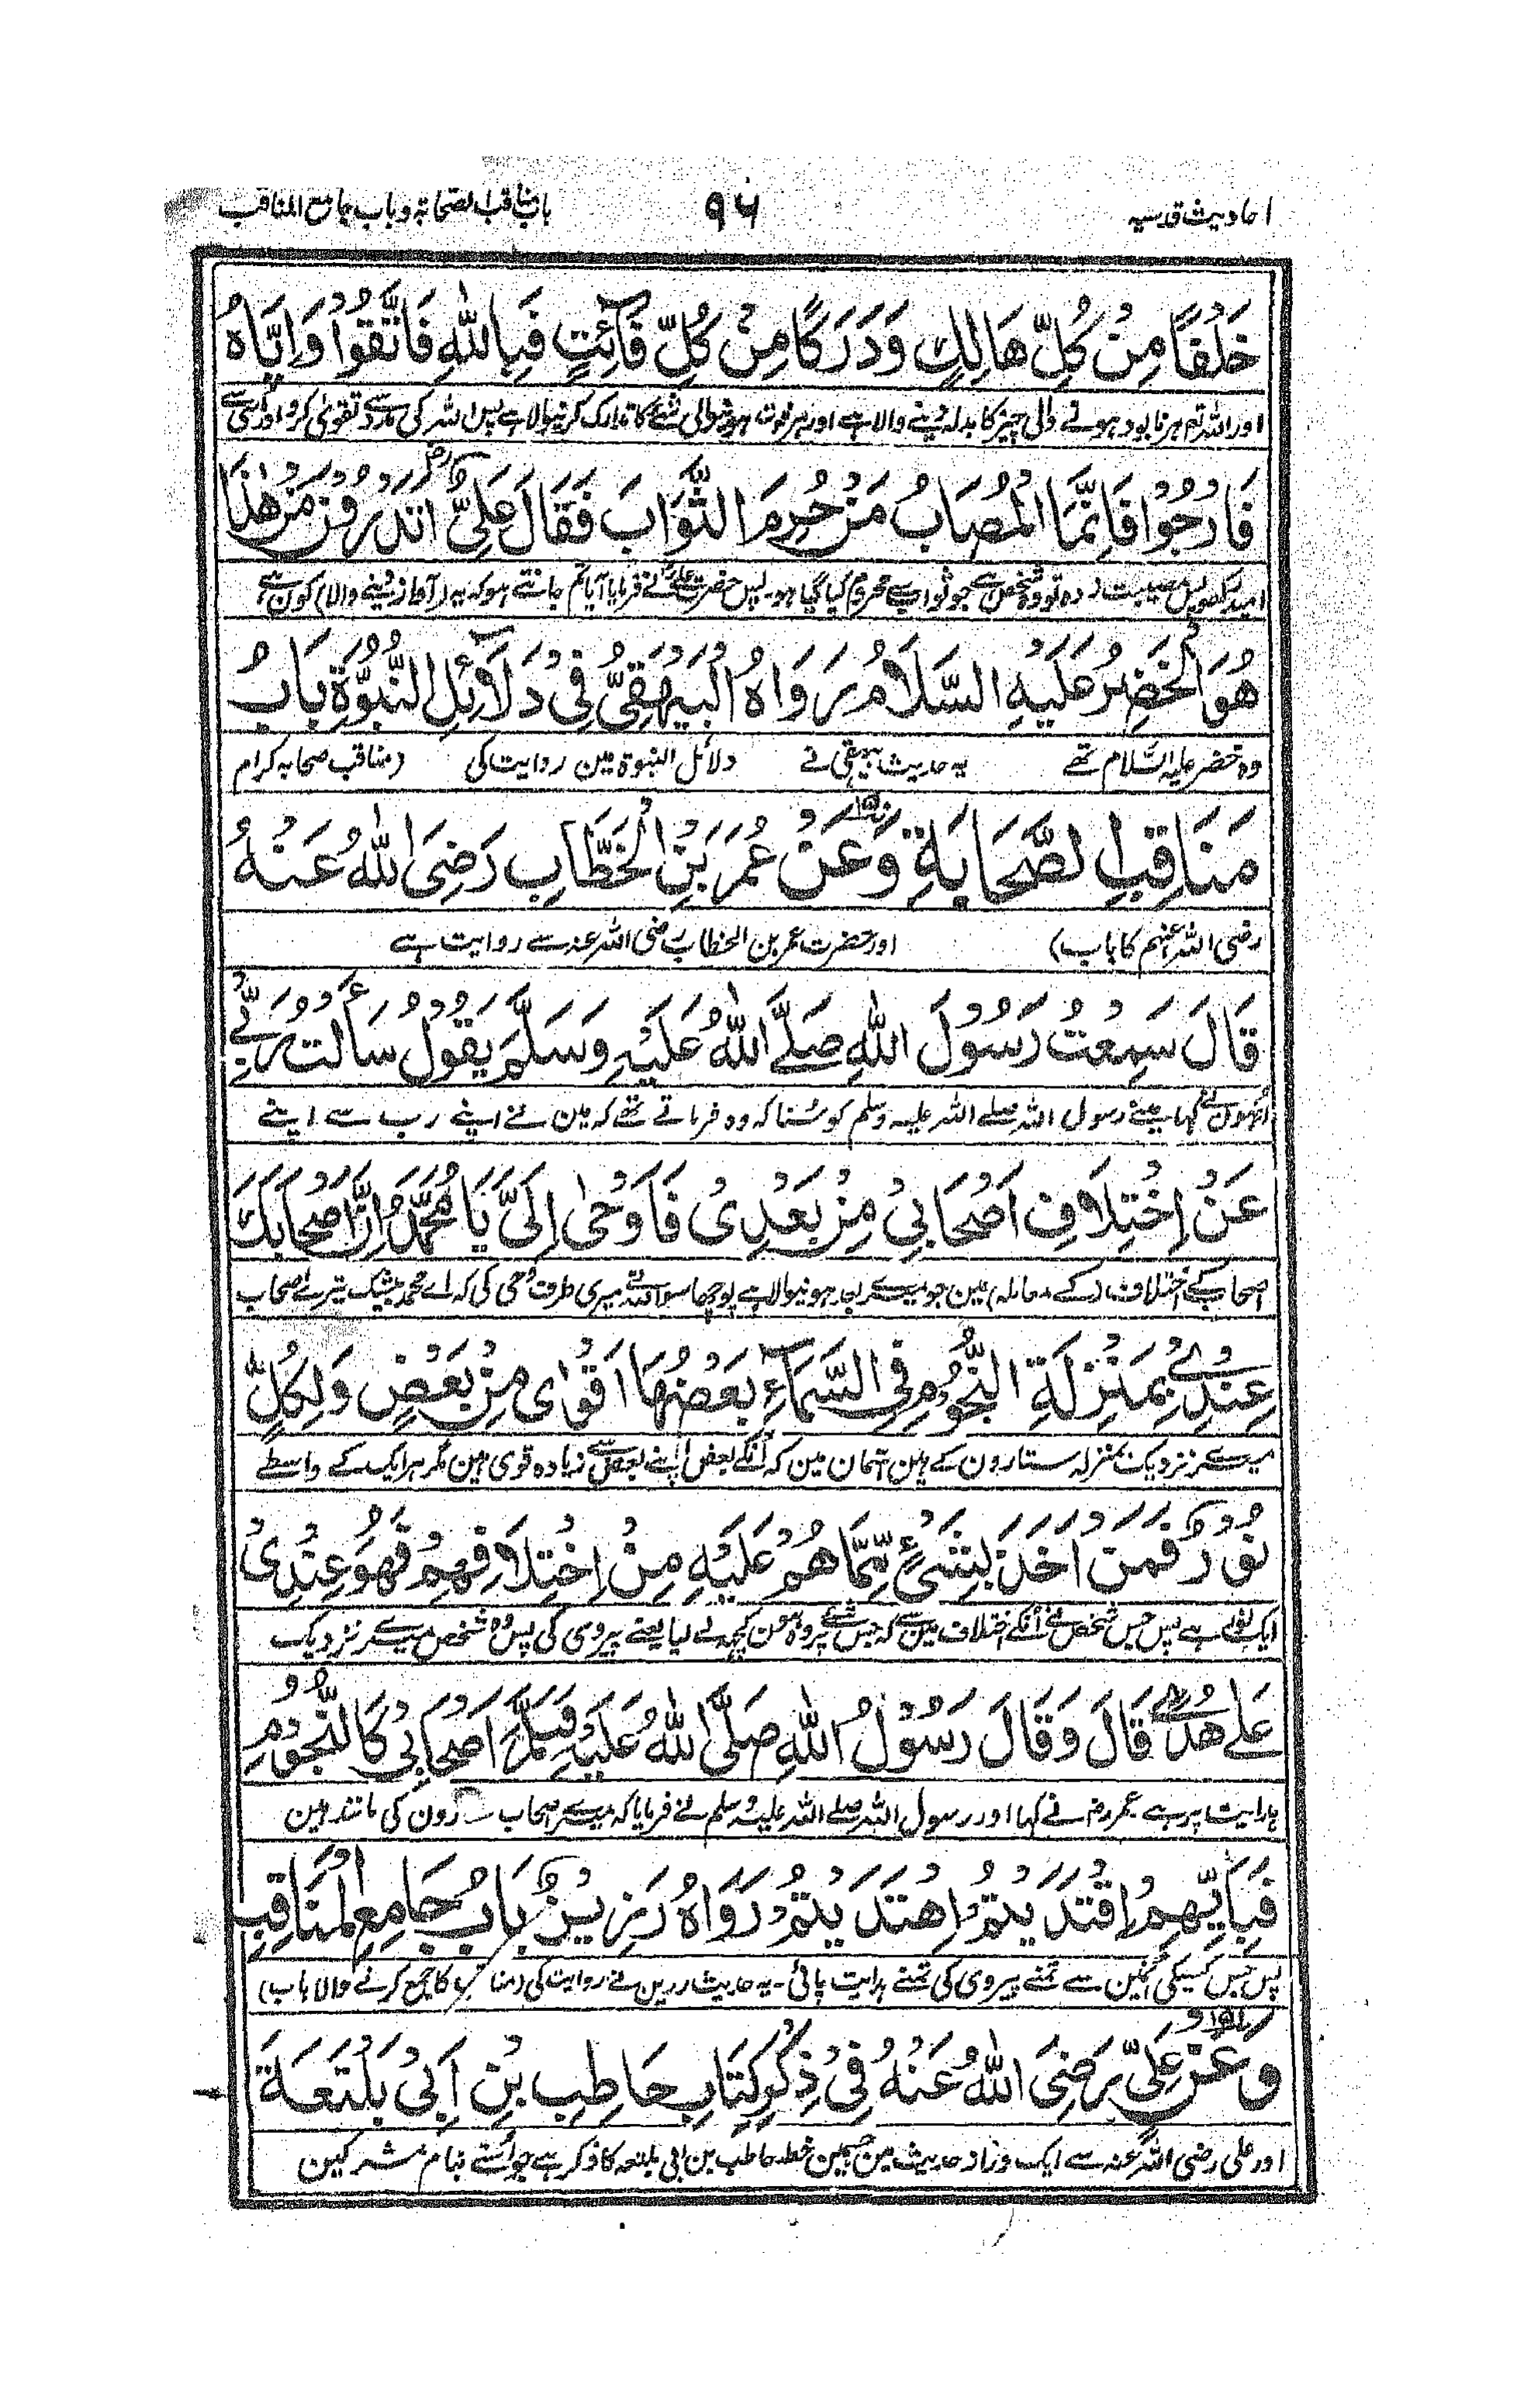 احادیث قدسیہ ۹۶ باب مناقب الصحابۃ و باب جامع المناقب
خَلَفًا مِنْ كُلِّ هَالِكٍ وَدَرَكًا مِنْ كُلِّ فَائِتٍ فَبِاللّٰهِ فَاتَّقُوْا وَاِيَّاهُ
اور اللہ تم ہر نابود ہونے والی چیز کا بدلہ دینے والا ہے اور ہر فوت ہونیوالی شئے کا تدارک کرنیوالا ہے پس اللہ کی مدد سے تقویٰ کرو اور اُسی سے
فَارْجُوْا فَاِنَّمَا الْمُصَابُ مَنْ حُرِمَ الثَّوَابَ فَقَالَ عَلِيٌّ اَتَدْرُوْنَ مَنْ هٰذَا
امید رکھو پس مصیبت زدہ تو وہ شخص ہے جو ثواب سے محروم کیا گیا ہو۔ پس حضرت علیؓ نے فرمایا آیا تم جانتے ہو کہ یہ (آواز دینے والا) کون ہے،
هُوَ الْخَضِرُ عَلَيْهِ السَّلَامُ رَوَاهُ الْبَيْهَقِيُّ فِيْ دَلَائِلِ النُّبُوَّةِ بَابُ
وہ خضر علیہ السَّلام تھے یہ حدیث بیہقی نے دلائل النبوۃ مین روایت کی (مناقب صحابہ کرام
مَنَاقِبِ الصَّحَابَةِ وَعَنْ عُمَرَ بْنِ الْخَطَّابِ رَضِيَ اللّٰهُ عَنْهُ
رضی اللہ عنہم کا باب) اور حضرت عمر بن الخطاب رضی اللہ عنہ سے روایت ہے
قَالَ سَمِعْتُ رَسُوْلَ اللّٰهِ صَلَّى اللّٰهُ عَلَيْهِ وَسَلَّمَ يَقُوْلُ سَاَلْتُ رَبِّيْ
اُنھوں نے کہا مینے رسول اللہ صلے اللہ علیہ وسلم کو سُنا کہ وہ فرماتے تھے کہ مین نے اپنے رب سے اپنے
عَنْ اِخْتِلَافِ اَصْحَابِيْ مِنْ بَعْدِيْ فَاَوْحٰى اِلَيَّ يَا مُحَمَّدُ اِنَّ اَصْحَابَكَ
اصحاب کے اختلاف (کے معاملہ) مین جو میرے بعد ہونیوالا ہے پوچھا سو اللہ نے میری طرف وحی کی کہ اے محمد بیشک تیرے اصحاب
عِنْدِيْ بِمَنْزِلَةِ النُّجُوْمِ فِي السَّمَاءِ بَعْضُهَا اَقْوٰى مِنْ بَعْضٍ وَلِكُلٍّ
میرے نزدیک بمنزلہ ستارون کے ہین آسمان مین کہ اُنکے بعض اپنے بعض سے زیادہ قوی ہین مگر ہر ایک کے واسطے
نُوْرٌ فَمَنْ اَخَذَ بِشَيْءٍ مِّمَّا هُمْ عَلَيْهِ مِنْ اِخْتِلَافِهِمْ فَهُوَ عِنْدِيْ
ایک نور ہے پس جس شخص نے اُنکے اختلاف مین سے کہ جس شئے پر وہ ہون کچھ لے لیا یعنے پیروی کی پس وہ شخص میرے نزدیک
عَلٰى هُدًى قَالَ وَقَالَ رَسُوْلُ اللّٰهِ صَلَّى اللّٰهُ عَلَيْهِ وَسَلَّمَ اَصْحَابِيْ كَالنُّجُوْمِ
ہدایت پر ہے عمر رضہ نے کہا اور رسول اللہ صلے اللہ علیہ وسلم نے فرمایا کہ میرے اصحاب رون کی مانند ہین
فَبِاَيِّهِمْ اِقْتَدَيْتُمْ اِهْتَدَيْتُمْ رَوَاهُ رَزِيْنٌ بَابُ جَامِعِ الْمَنَاقِبِ
پس جس کسیکی اُنمین سے تمنے پیروی کی تمنے ہدایت پائی۔ یہ حدیث رزین نے روایت کی (مناقب کا جمع کرنے والا باب)
وَعَنْ عَلِيٍّ رَضِيَ اللّٰهُ عَنْهُ فِيْ ذِكْرِ كِتَابِ حَاطِبِ بْنِ اَبِيْ بَلْتَعَةَ
اور علی رضی اللہ عنہ سے ایک دراز حدیث مین جسمین خط حاطب بن ابی بلتعہ کا ذکر ہے جو اُسنے بنام مشرکین